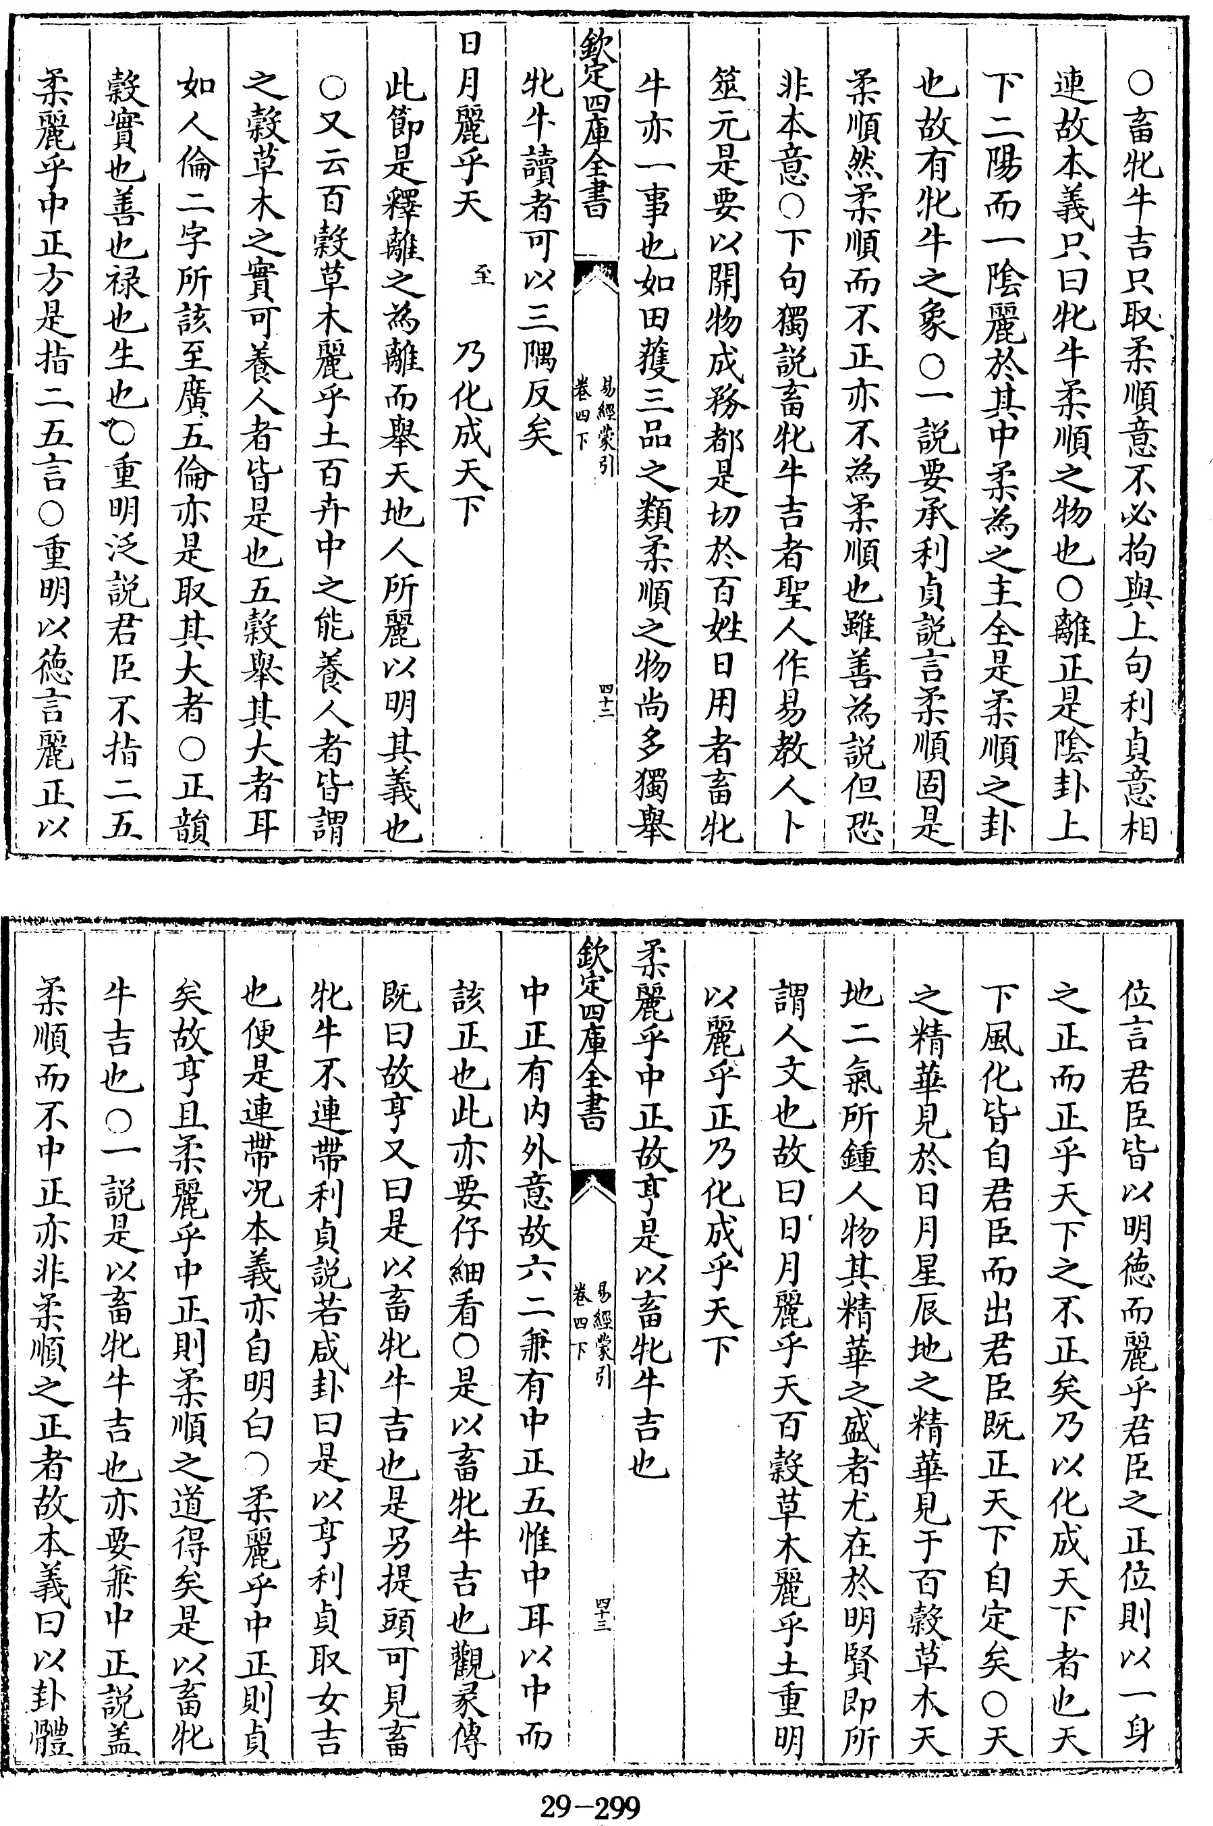 ○畜牝牛吉只取柔順意不必拘與上句利貞意相
連故本義只曰牝牛柔順之物也○離正是陰卦上
下二陽而一陰麗於其中柔為之主全是柔順之卦
也故有牝牛之象○一說要承利貞說言柔順固是
柔順然柔順而不正亦不為柔順也雖善為說但恐
非本意○下句獨說畜牝牛吉者聖人作易教人卜
筮元是要以開物成務都是切於百姓日用者畜牝
牛亦一事也如田獲三品之類柔順之物尚多獨舉
欽定四庫全書
易經蒙引
卷四下
四十二
牝牛讀者可以三隅反矣
日月麗乎天 至 乃化成天下
此節是釋離之為離而舉天地人所麗以明其義也
○又云百穀草木麗乎土百卉中之能養人者皆謂
之穀草木之實可養人者皆是也五穀舉其大者耳
如人倫二字所該至廣五倫亦是取其大者○正韻
穀實也善也祿也生也○重明泛說君臣不指二五
柔麗乎中正方是指二五言○重明以德言麗正以
位言君臣皆以明德而麗乎君臣之正位則以一身
之正而正乎天下之不正矣乃以化成天下者也天
下風化皆自君臣而出君臣既正天下自定矣○天
之精華見於日月星辰地之精華見于百穀草木天
地二氣所鍾人物其精華之盛者尤在於明賢即所
謂人文也故曰日月麗乎天百穀草木麗乎土重明
以麗乎正乃化成乎天下
柔麗乎中正故亨是以畜牝牛吉也
欽定四庫全書
易經蒙引
卷四下
四十三
中正有内外意故六二兼有中正五惟中耳以中而
該正也此亦要仔細看○是以畜牝牛吉也觀彖傳
既曰故亨又曰是以畜牝牛吉也是另提頭可見畜
牝牛不連帶利貞說若咸卦曰是以亨利貞取女吉
也便是連帶況本義亦自明白○柔麗乎中正則貞
矣故亨且柔麗乎中正則柔順之道得矣是以畜牝
牛吉也○一說是以畜牝牛吉也亦要兼中正說蓋
柔順而不中正亦非柔順之正者故本義曰以卦體
29-299